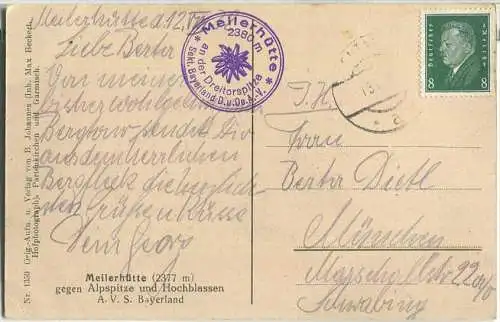 Meilerhütte a 12.VII
Liebe Berta
Von meiner
bisher wohlgelungenen
Bergtour sendet Dir
aus dem herrlichen
Bergfleck die herzlich
sten Grüße u. Küsse
Dein Georg
Meilerhütte (2377 m)
gegen Alpspitze und Hochblassen
A. V. S. Bayerland
Nr. 1350 Orig.-Aufn. u. Verlag von B. Johannes (Inh. Max Beckert,
Hofphotograph), Partenkirchen und Garmisch.
* Meilerhütte *
2380 m
an der Dreitorspitze
Sekt. Bayerland D.u.Oe.A.V.
Deutsches Reich
8 8
Berta Dietl
München
Marschallstr
Schwabing